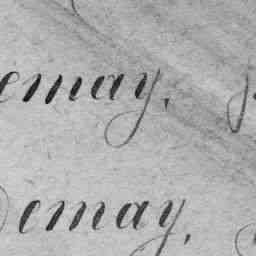 emay,
emay,